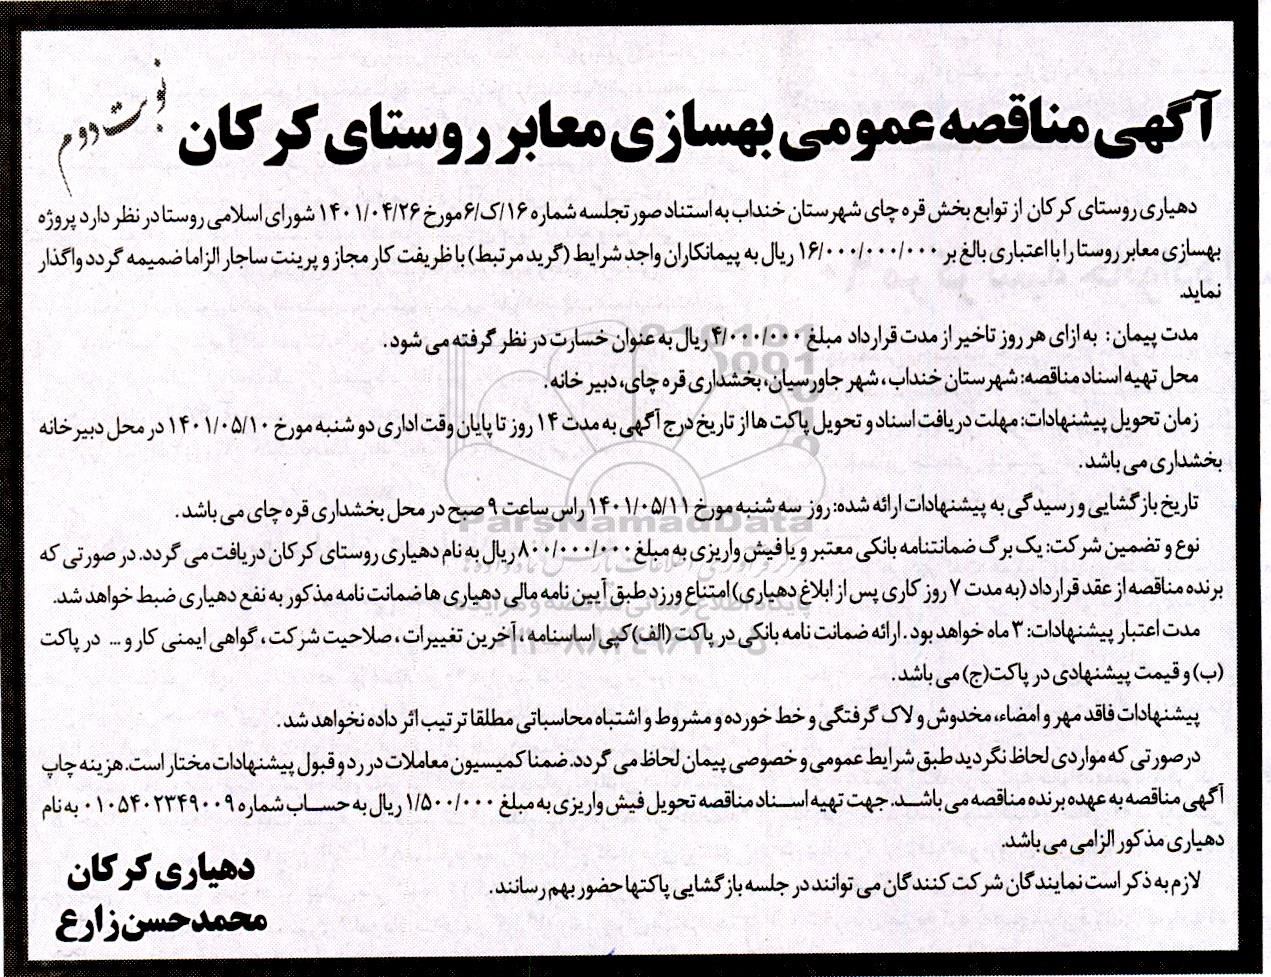 نوبت دوم
آگهی مناقصه عمومی بهسازی معابر روستای کرکان
دهیاری روستای کرکان از توابع بخش قره چای شهرستان خنداب به استناد صورتجلسه شماره ۱۶/ک/۶ مورخ ۱۴۰۱/۰۴/۲۶ شورای اسلامی روستا در نظر دارد پروژه
بهسازی معابر روستا را با اعتباری بالغ بر ۱۶/۰۰۰/۰۰۰/۰۰۰ ریال به پیمانکاران واجد شرایط (گرید مرتبط) با ظریفت کار مجاز و پرینت ساجار الزاما ضمیمه گردد واگذار
نماید.
مدت پیمان : به ازای هر روز تاخیر از مدت قرارداد مبلغ ۴/۰۰۰/۰۰۰ ریال به عنوان خسارت در نظر گرفته می شود .
محل تهیه اسناد مناقصه: شهرستان خنداب ، شهر جاورسیان، بخشداری قره چای، دبیر خانه .
زمان تحویل پیشنهادات: مهلت دریافت اسناد و تحویل پاکت ها از تاریخ درج آگهی به مدت ۱۴ روز تا پایان وقت اداری دو شنبه مورخ ۱۴۰۱/۰۵/۱۰ در محل دبیرخانه
بخشداری می باشد .
تاریخ بازگشایی و رسیدگی به پیشنهادات ارائه شده: روز سه شنبه مورخ ۱۴۰۱/۰۵/۱۱ راس ساعت ۹ صبح در محل بخشداری قره چای می باشد .
نوع و تضمین شرکت: یک برگ ضمانتنامه بانکی معتبر و یا فیش واریزی به مبلغ ۸۰۰/۰۰۰/۰۰۰ ریال به نام دهیاری روستای کرکان دریافت می گردد. در صورتی که
برنده مناقصه از عقد قرارداد (به مدت ۷ روز کاری پس از ابلاغ دهیاری) امتناع ورزد طبق آیین نامه مالی دهیاری ها ضمانت نامه مذکور به نفع دهیاری ضبط خواهد شد.
مدت اعتبار پیشنهادات: ۳ ماه خواهد بود . ارائه ضمانت نامه بانکی در پاکت (الف) کپی اساسنامه ، آخرین تغییرات ، صلاحیت شرکت ، گواهی ایمنی کار و ... در پاکت
(ب) و قیمت پیشنهادی در پاکت(ج) می باشد .
پیشنهادات فاقد مهر و امضاء، مخدوش و لاک گرفتگی و خط خورده و مشروط و اشتباه محاسباتی مطلقا ترتیب اثر داده نخواهد شد .
درصورتی که مواردی لحاظ نگردید طبق شرایط عمومی و خصوصی پیمان لحاظ می گردد. ضمنا کمیسیون معاملات در رد و قبول پیشنهادات مختار است. هزینه چاپ
آگهی مناقصه به عهده برنده مناقصه می باشد. جهت تهیه اسناد مناقصه تحویل فیش واریزی به مبلغ ۱/۵۰۰/۰۰۰ ریال به حساب شماره ۰۱۰۵۴۰۲۳۴۹۰۰۹ به نام
دهیاری مذکور الزامی می باشد.
لازم به ذکر است نمایندگان شرکت کنندگان می توانند در جلسه بازگشایی پاکتها حضور بهم رسانند.
دهیاری کرکان
محمدحسن زارع
ParsNamadData
پایگاه اطلاع رسانی مناقصه و مزایده